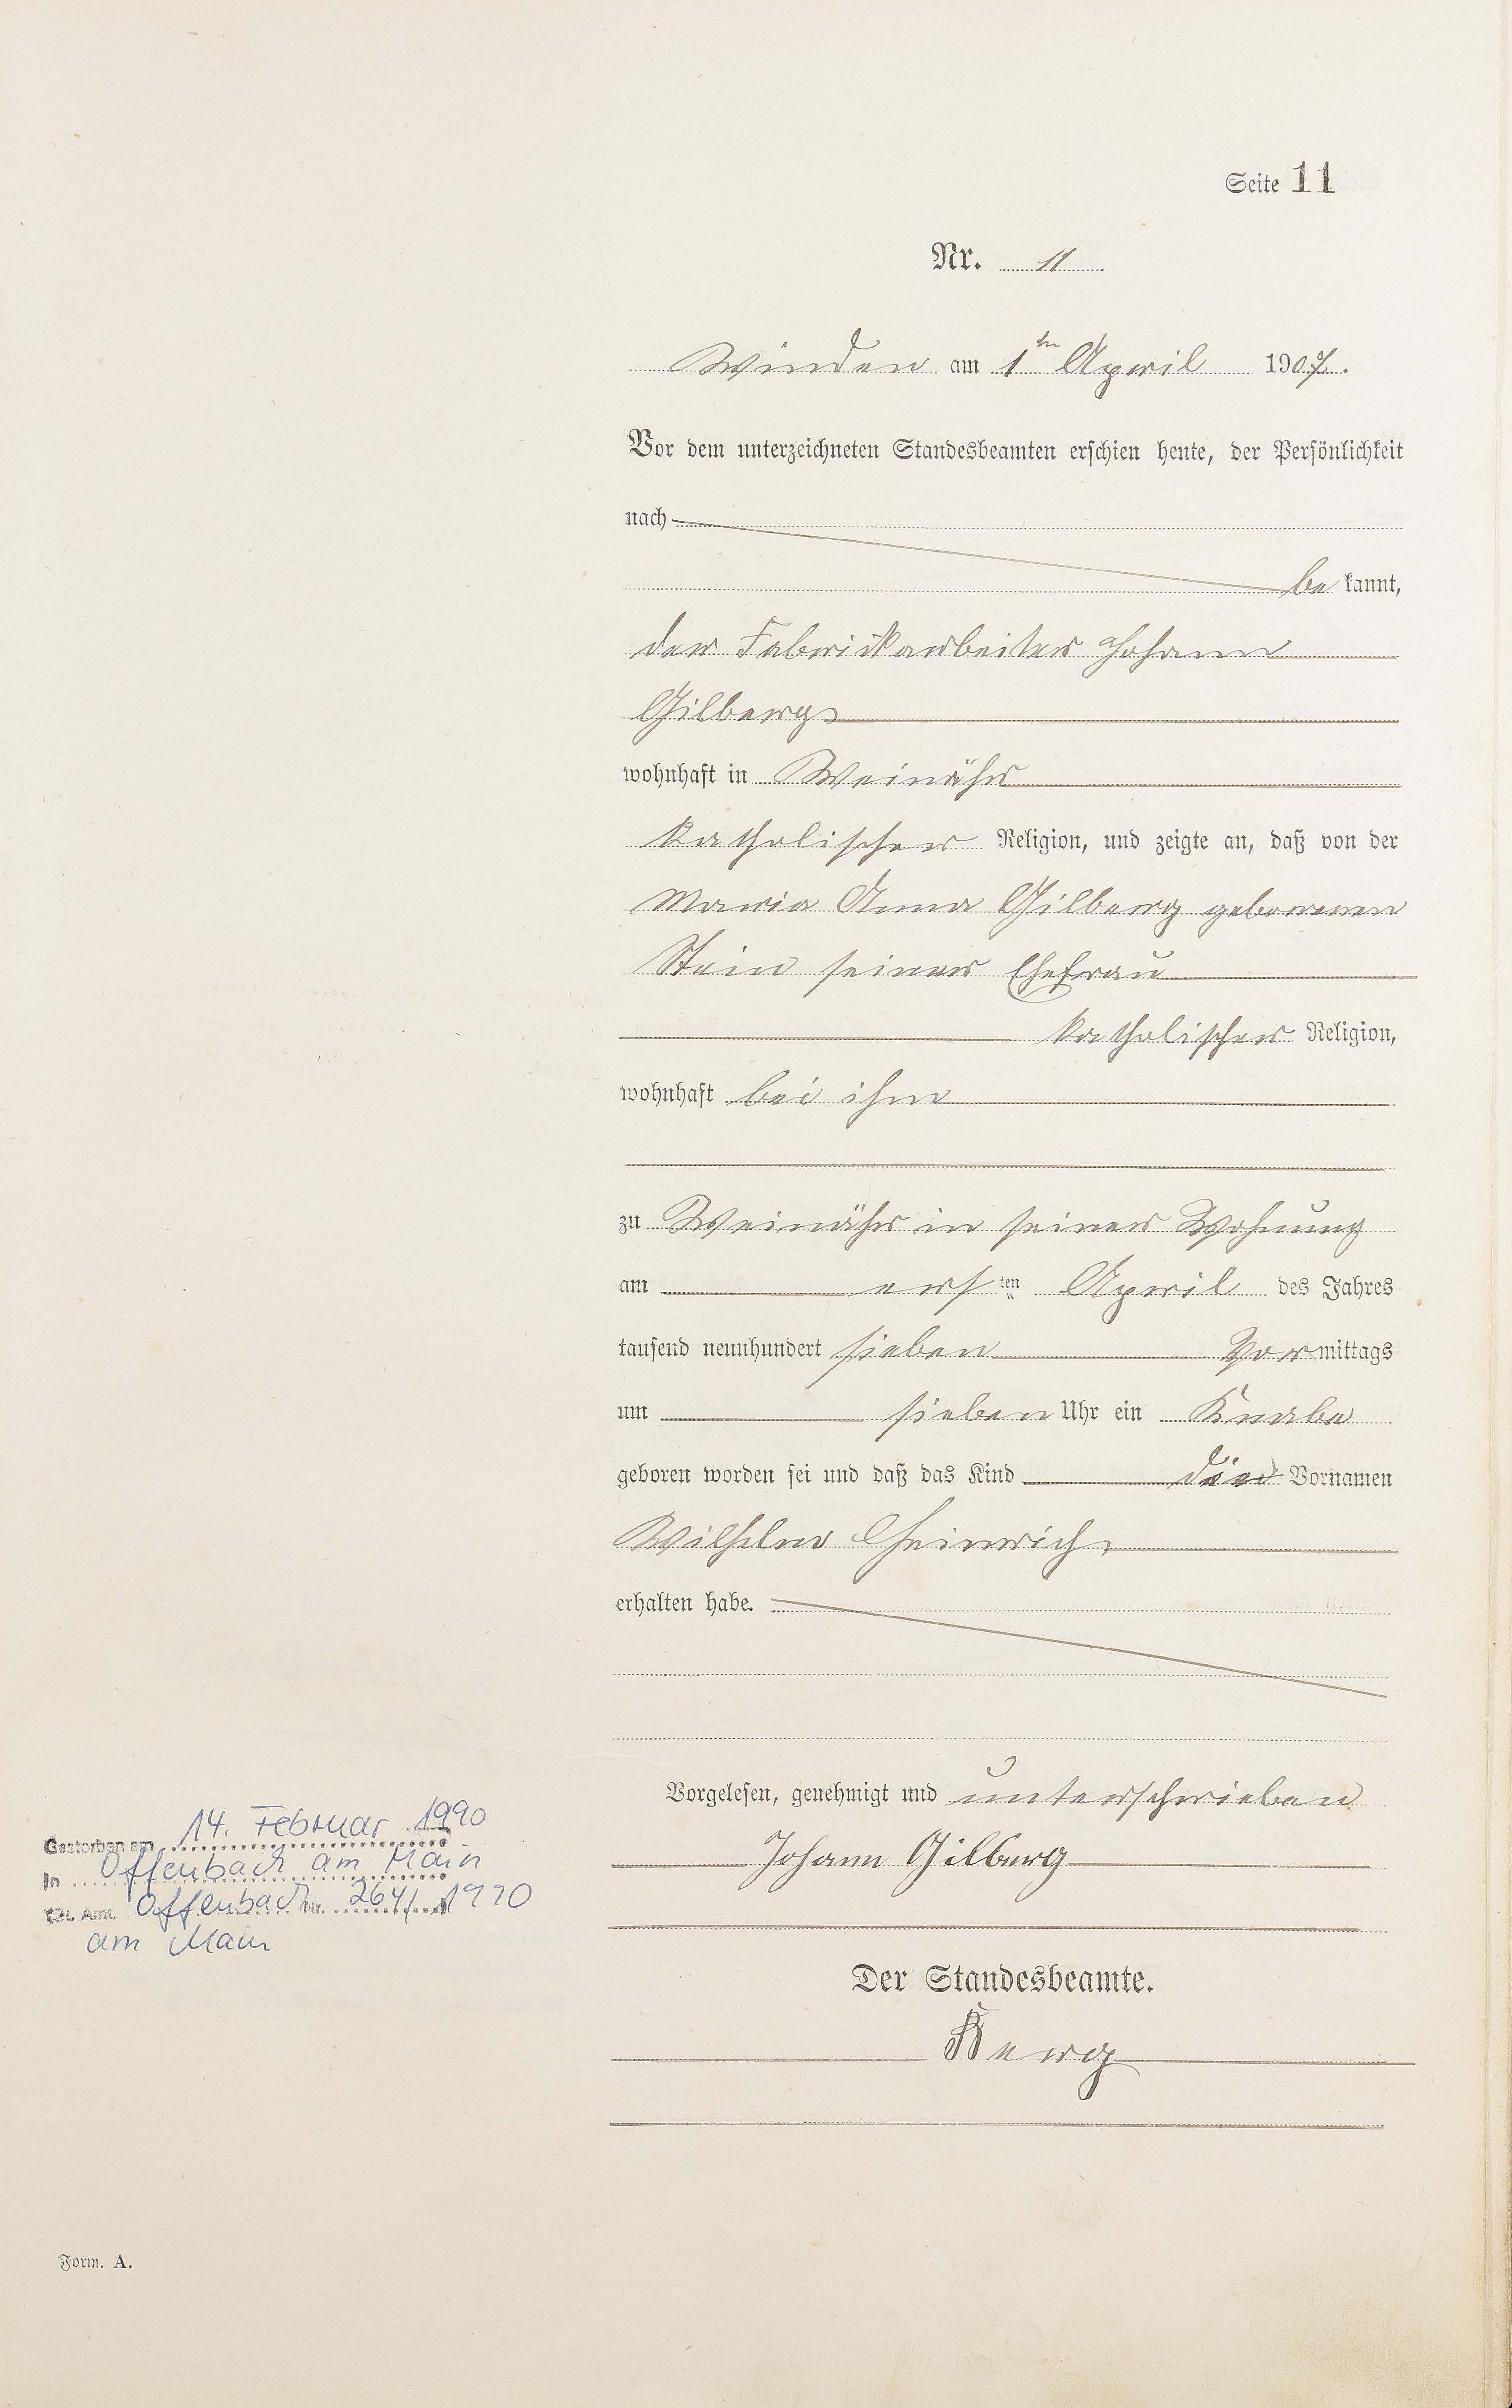 Seite 11
Nr. 11
Winden am 1ten April 1907.
Vor dem unterzeichneten Standesbeamten erschien heute, der Persönlichkeit
nach
be kannt,
der Fabrikarbeiter Johann
Gilberg
wohnhaft in Weinähr
katholischer Religion, und zeigte an, daß von der
Maria Anna Gilberg geborenen
Stein seiner Ehefrau
katholischer Religion,
wohnhaft bei ihm
zu Weinähr in seiner Wohnung
am ersten April des Jahres
tausend neunhundert sieben Vormittags
um sieben Uhr ein Knabe
geboren worden sei und daß das Kind die Vornamen
Wilhelm Heinrich
erhalten habe.
Vorgelesen, genehmigt und unterschrieben
Johann Gilberg
Der Standesbeamte.
Gestorben am 14. Februar 1990
in Offenbach am Main
Offenbach Nr. 264/1990
am Main
Form. A.